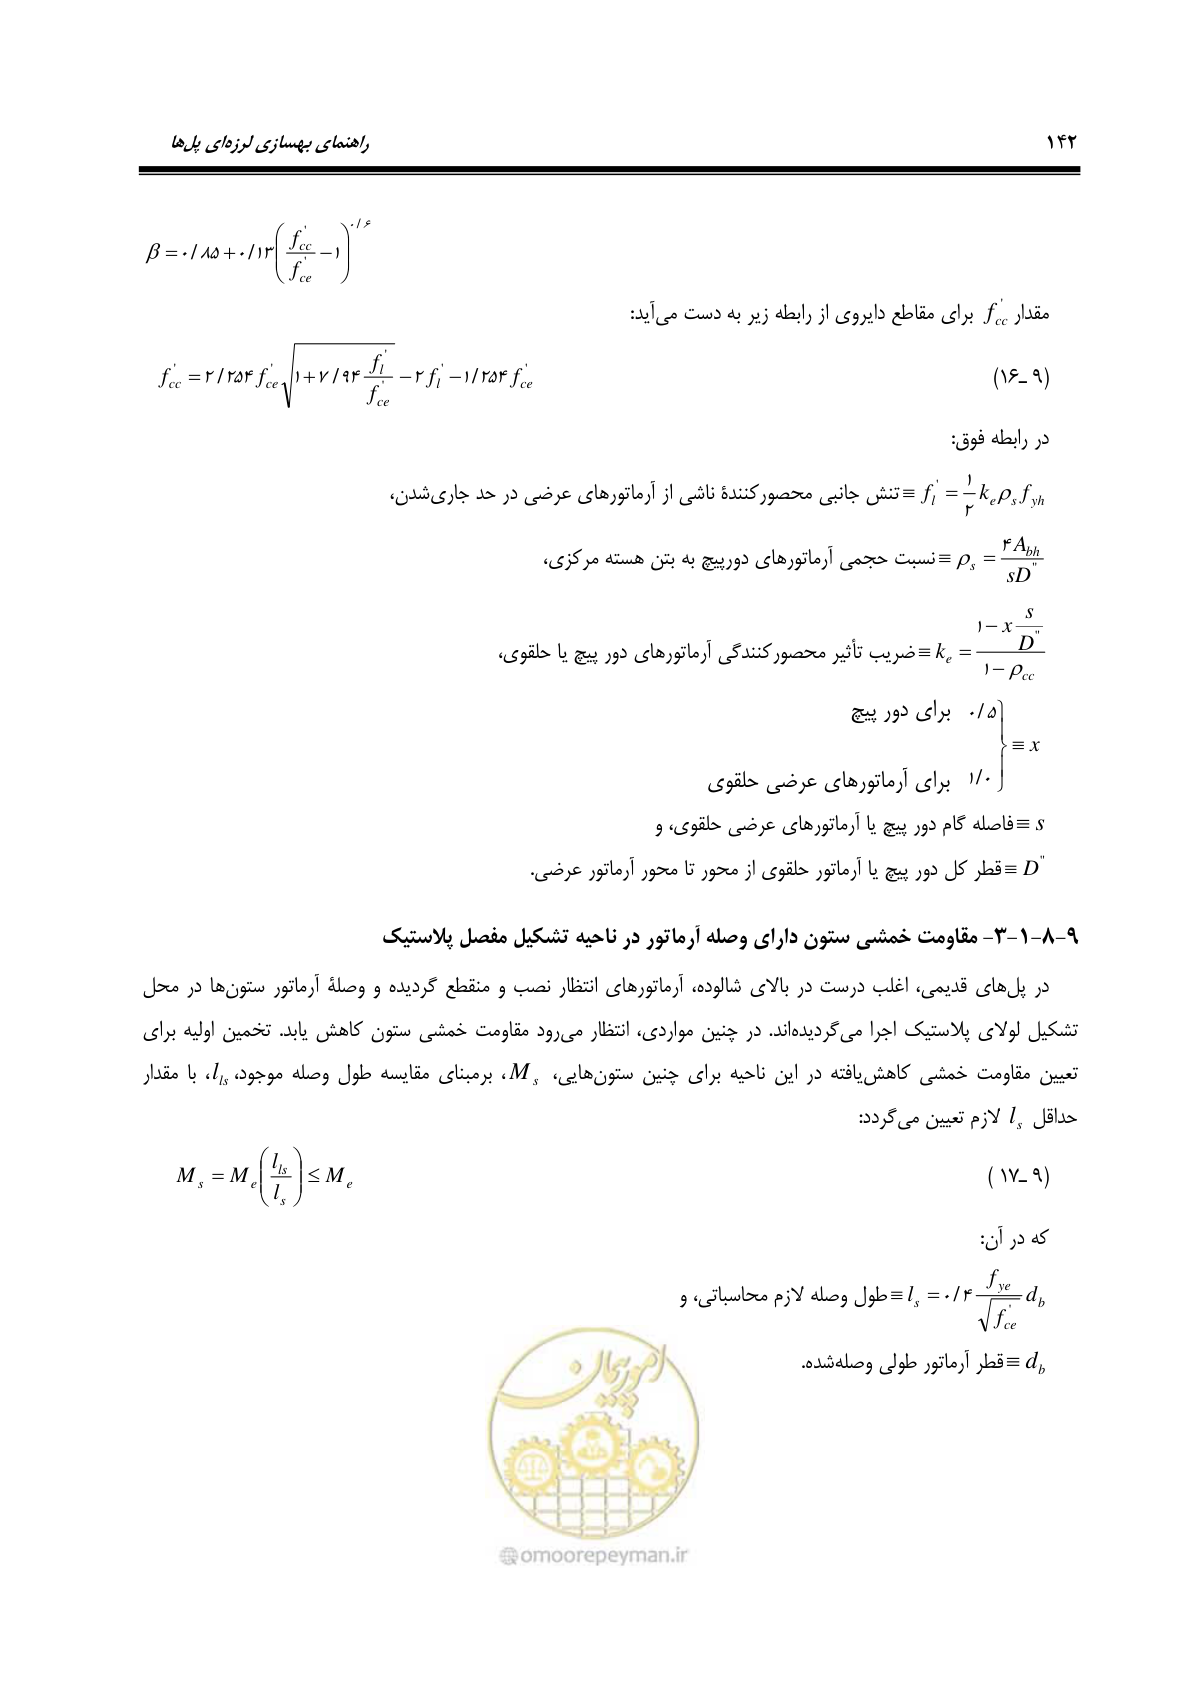 ۱۴۲ راهنمای بهسازی لرزه‌ای پل‌ها
β = ۰/۸۵ + ۰/۱۳ (f'cc / f'ce − ۱)^۰/۶
مقدار f'cc برای مقاطع دایروی از رابطه زیر به دست می‌آید:
(۹ـ۱۶) f'cc = ۲/۲۵۴ f'ce √(۱ + ۷/۹۴ f'l / f'ce) − ۲ f'l − ۱/۲۵۴ f'ce
در رابطه فوق:
f'l = ۱/۲ ke ρs fyh ≡ تنش جانبی محصورکنندهٔ ناشی از آرماتورهای عرضی در حد جاری‌شدن،
ρs = ۴Abh / sD" ≡ نسبت حجمی آرماتورهای دورپیچ به بتن هسته مرکزی،
ke = (۱ − x s/D") / (۱ − ρcc) ≡ ضریب تأثیر محصورکنندگی آرماتورهای دور پیچ یا حلقوی،
۰/۵ برای دور پیچ
x ≡
۱/۰ برای آرماتورهای عرضی حلقوی
s ≡ فاصله گام دور پیچ یا آرماتورهای عرضی حلقوی، و
D" ≡ قطر کل دور پیچ یا آرماتور حلقوی از محور تا محور آرماتور عرضی.
۹-۸-۱-۳- مقاومت خمشی ستون دارای وصله آرماتور در ناحیه تشکیل مفصل پلاستیک
در پل‌های قدیمی، اغلب درست در بالای شالوده، آرماتورهای انتظار نصب و منقطع گردیده و وصلهٔ آرماتور ستون‌ها در محل
تشکیل لولای پلاستیک اجرا می‌گردیده‌اند. در چنین مواردی، انتظار می‌رود مقاومت خمشی ستون کاهش یابد. تخمین اولیه برای
تعیین مقاومت خمشی کاهش‌یافته در این ناحیه برای چنین ستون‌هایی، Ms، برمبنای مقایسه طول وصله موجود، lls، با مقدار
حداقل ls لازم تعیین می‌گردد:
(۹ـ۱۷) Ms = Me (lls / ls) ≤ Me
که در آن:
ls = ۰/۴ fye / √f'ce db ≡ طول وصله لازم محاسباتی، و
db ≡ قطر آرماتور طولی وصله‌شده.
امور پیمان
@omoorepeyman.ir